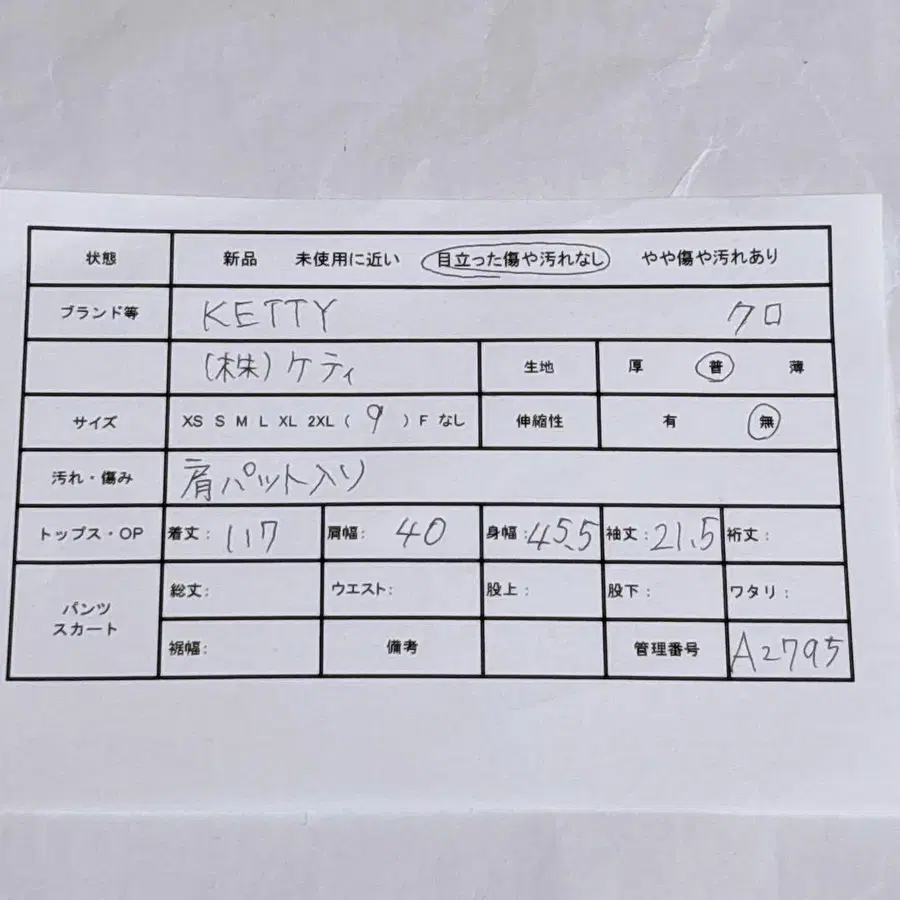 状態 新品 未使用に近い 目立った傷や汚れなし やや傷や汚れあり
ブランド等 KETTY クロ
(株)ケティ 生地 厚 普 薄
サイズ XS S M L XL 2XL ( 9 ) F なし 伸縮性 有 無
汚れ・傷み 肩パット入り
トップス・OP 着丈: 117 肩幅: 40 身幅: 45.5 袖丈: 21.5 裄丈:
パンツ スカート 総丈: ウエスト: 股上: 股下: ワタリ:
裾幅: 備考 管理番号 A2795